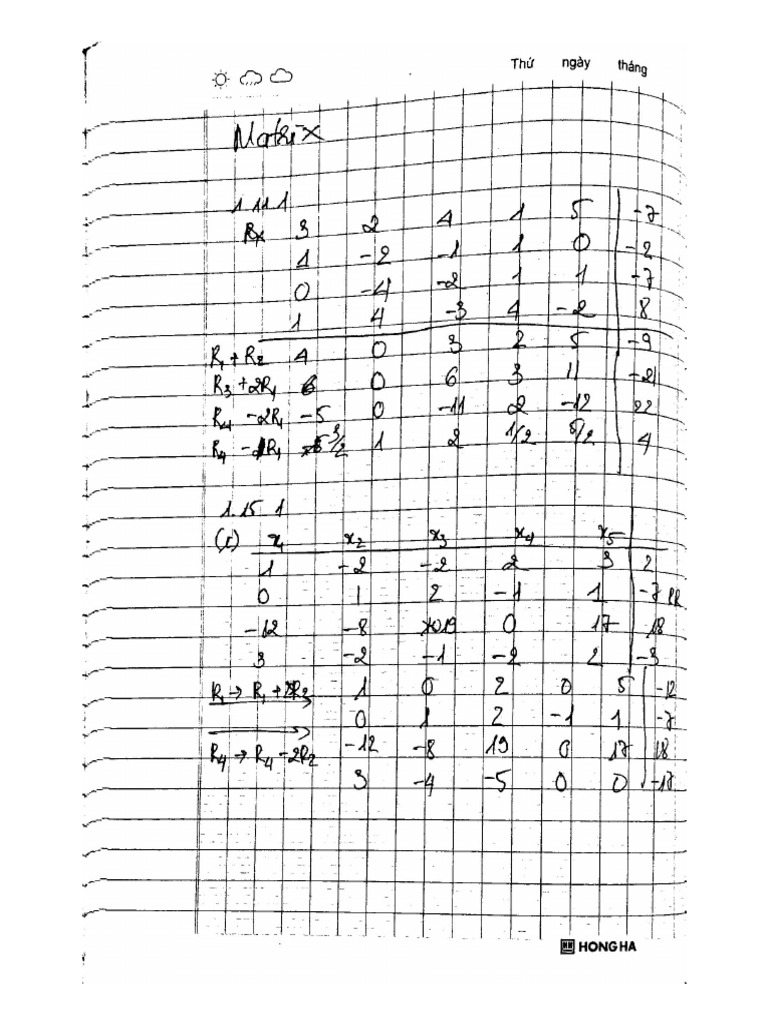 Thứ ngày tháng
Matrix
1.11.1
Rx 3 2 4 1 5 | -7
1 -2 -1 1 0 | -2
0 -4 -2 1 1 | -7
1 4 -3 4 -2 | 8
R1 + R2 4 0 3 2 5 | -9
R3 + 2R1 6 0 6 3 11 | -21
R4 - 2R1 -5 0 -11 2 -12 | 22
R4 - R1 3/2 1 2 1/2 5/2 | 4
1.15.1
(1) x1 x2 x3 x4 x5
1 -2 -2 2 3 | 2
0 1 2 -1 1 | -7
-12 -8 19 0 17 | 18
3 -2 -1 -2 2 | -3
R1 → R1 + 2R2 1 0 2 0 5 | -12
0 1 2 -1 1 | -7
-12 -8 19 0 17 | 18
R4 → R4 - 2R2 3 -4 -5 0 0 | -17
HONG HA